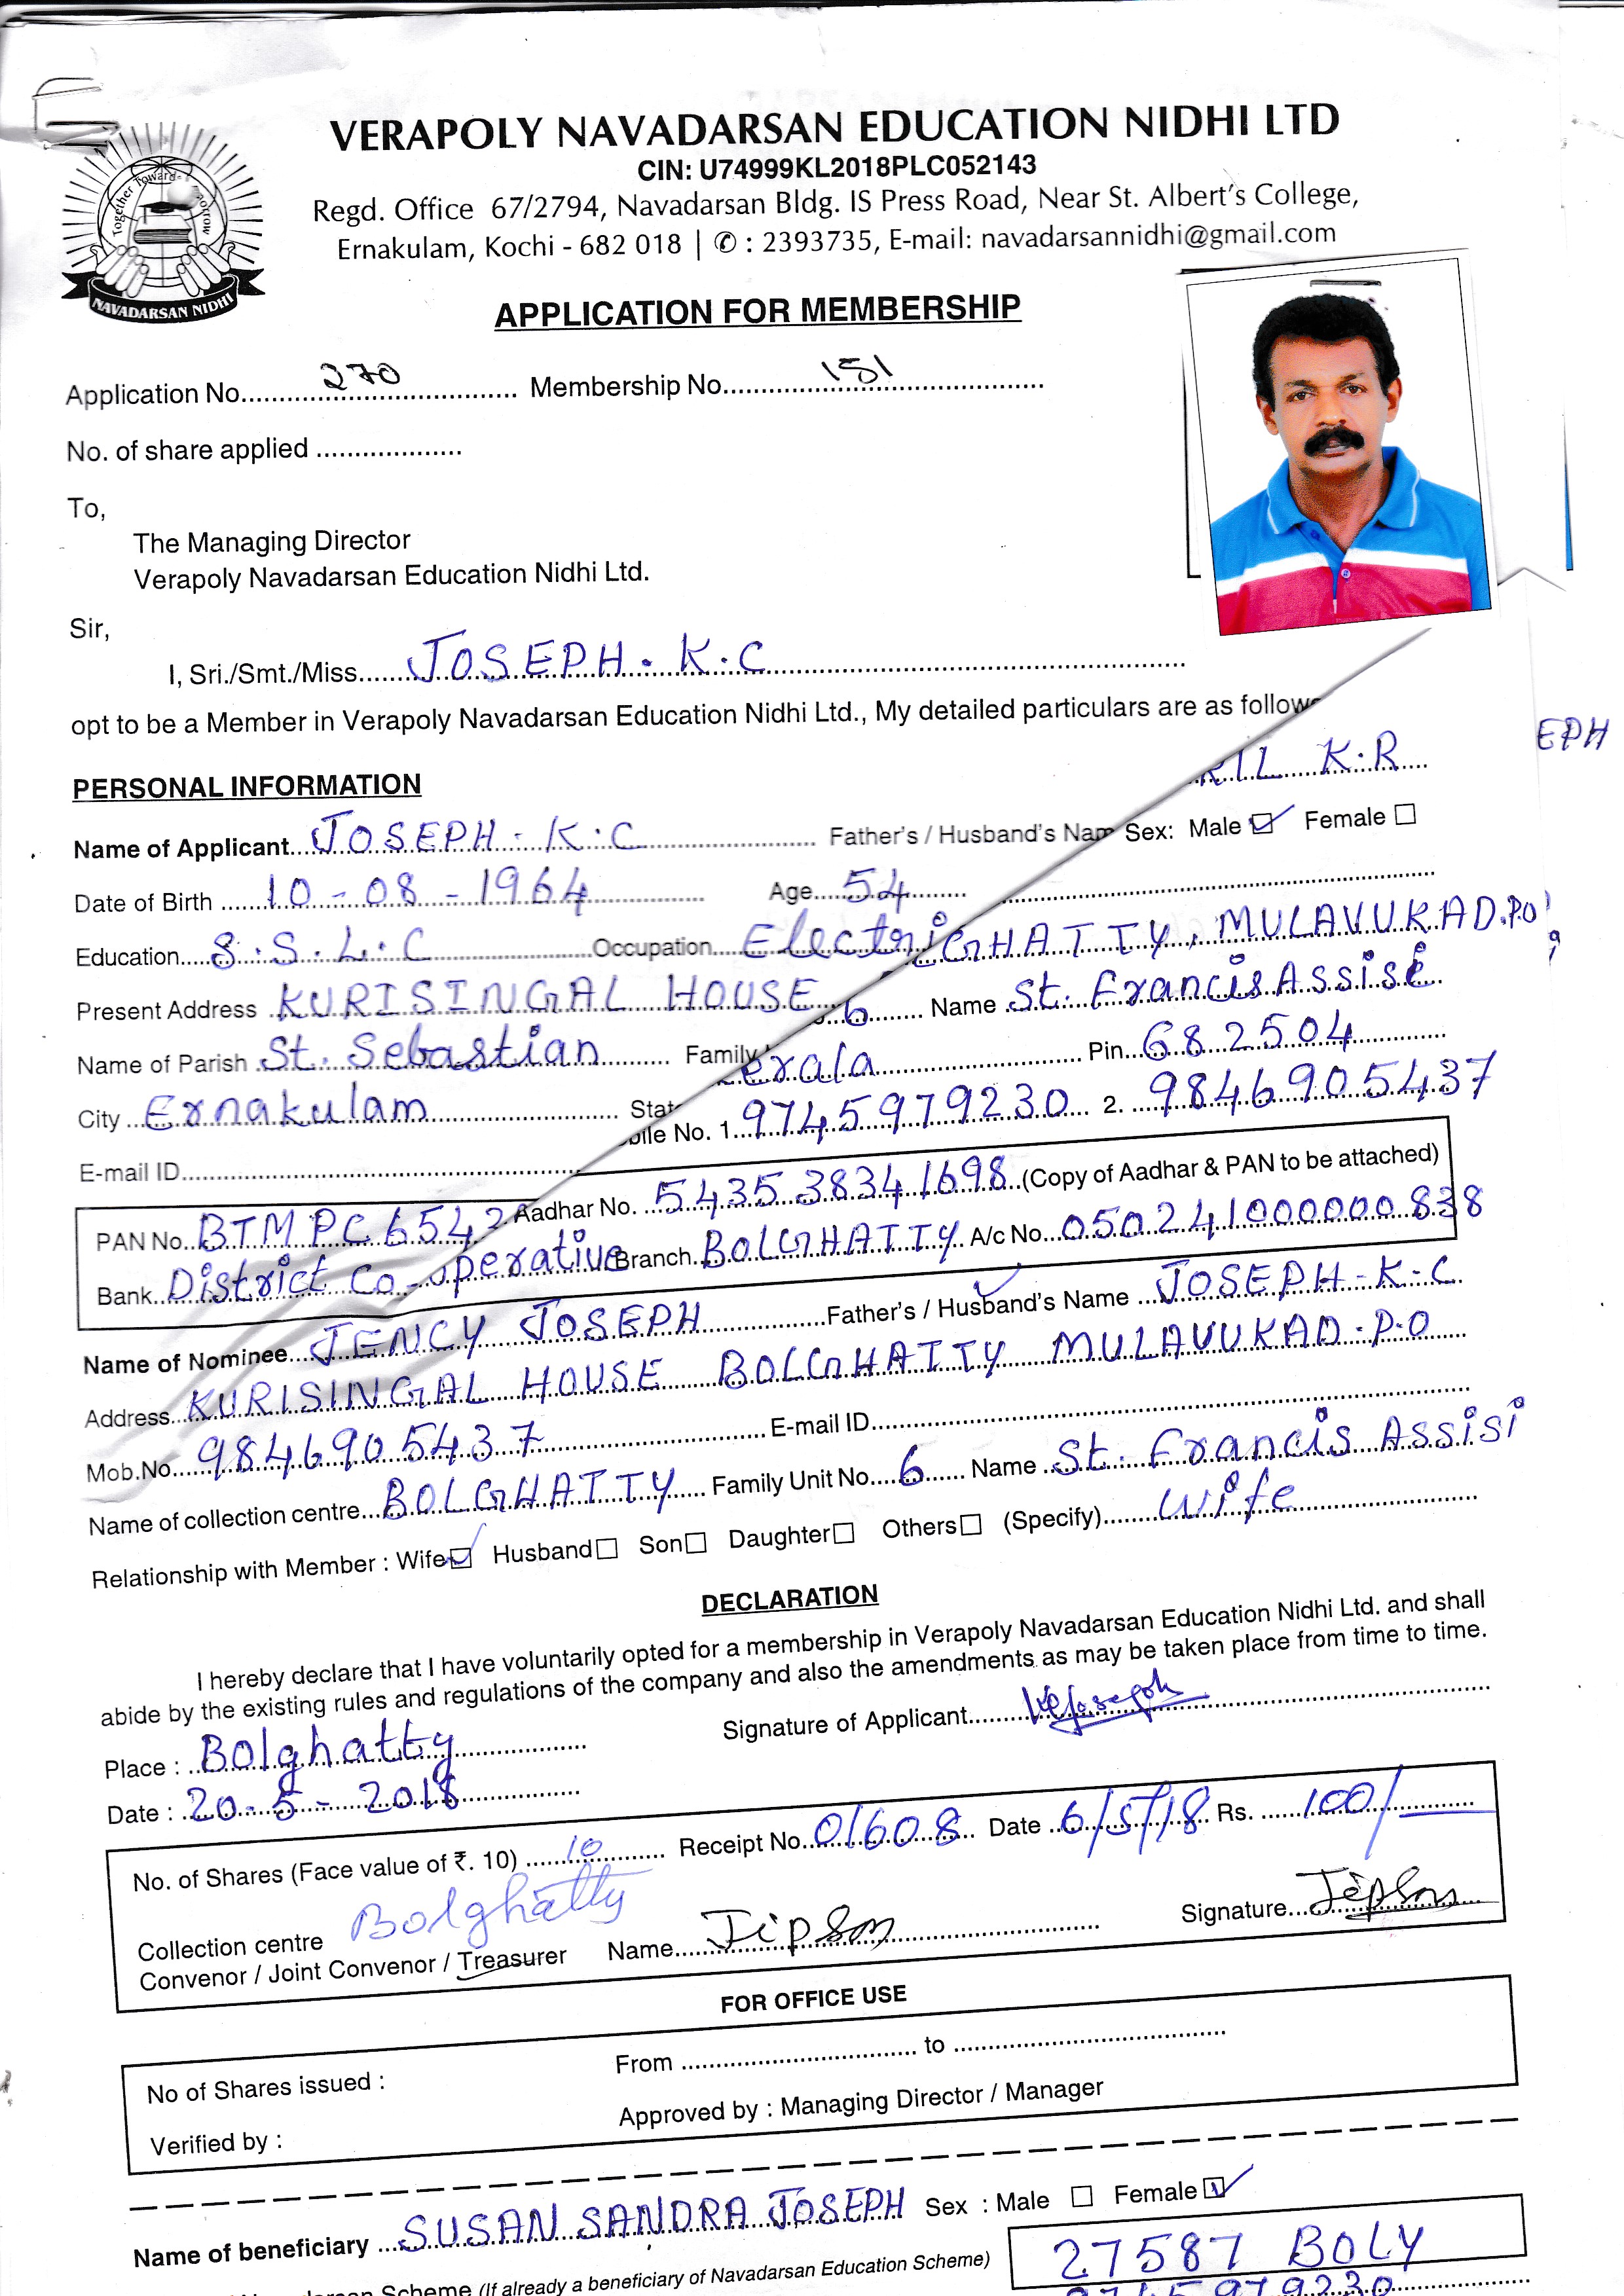 VERAPOLY NAVADARSAN EDUCATION NIDHI LTD
CIN: U74999KL2018PLC052143
Regd. Office 67/2794, Navadarsan Bldg. IS Press Road, Near St. Albert's College,
Ernakulam, Kochi - 682 018 | ✆ : 2393735, E-mail: navadarsannidhi@gmail.com
Together Towards
NAVADARSAN NIDHI
APPLICATION FOR MEMBERSHIP
Application No. 270 Membership No. 151
No. of share applied
To,
The Managing Director
Verapoly Navadarsan Education Nidhi Ltd.
Sir,
I, Sri./Smt./Miss. JOSEPH. K.C
opt to be a Member in Verapoly Navadarsan Education Nidhi Ltd., My detailed particulars are as follow
EPH
PERSONAL INFORMATION
RIL K.R
Name of Applicant JOSEPH. K.C Father's / Husband's Nam Sex: Male ☑ Female ☐
Date of Birth 10-08-1964 Age 54
Education S.S.L.C Occupation Electri GHATTY, MULAVUKAD.P.O
Present Address KURISINGAL HOUSE 6 Name St. Francis Assise
Name of Parish St. Sebastian Family erala Pin 682504
City Ernakulam Stat bile No. 1. 9745979230 2. 9846905437
E-mail ID
PAN No. BTMPC6542 Aadhar No. 5435 3834 1698 (Copy of Aadhar & PAN to be attached)
Bank District Co-operative Branch BOLGHATTY A/c No. 050241000000838
Name of Nominee JENCY JOSEPH Father's / Husband's Name JOSEPH-K-C
Address KURISINGAL HOUSE BOLGHATTY MULAVUKAD.P.O
Mob.No. 9846905437 E-mail ID
Name of collection centre BOLGHATTY Family Unit No. 6 Name St. Francis Assisi
Relationship with Member : Wife ☑ Husband ☐ Son ☐ Daughter ☐ Others ☐ (Specify) wife
DECLARATION
I hereby declare that I have voluntarily opted for a membership in Verapoly Navadarsan Education Nidhi Ltd. and shall
abide by the existing rules and regulations of the company and also the amendments as may be taken place from time to time.
Signature of Applicant KCJoseph
Place : Bolghatty
Date : 20-5-2018
No. of Shares (Face value of ₹. 10) 10 Receipt No. 01608 Date 6/5/18 Rs. 100/-
Collection centre Bolghatty
Convenor / Joint Convenor / Treasurer Name Jipson Signature Jipson
FOR OFFICE USE
No of Shares issued : From to
Verified by : Approved by : Managing Director / Manager
Name of beneficiary SUSAN SANDRA JOSEPH Sex : Male ☐ Female ☑
Scheme (If already a beneficiary of Navadarsan Education Scheme) 27587 BOLY
9745979230